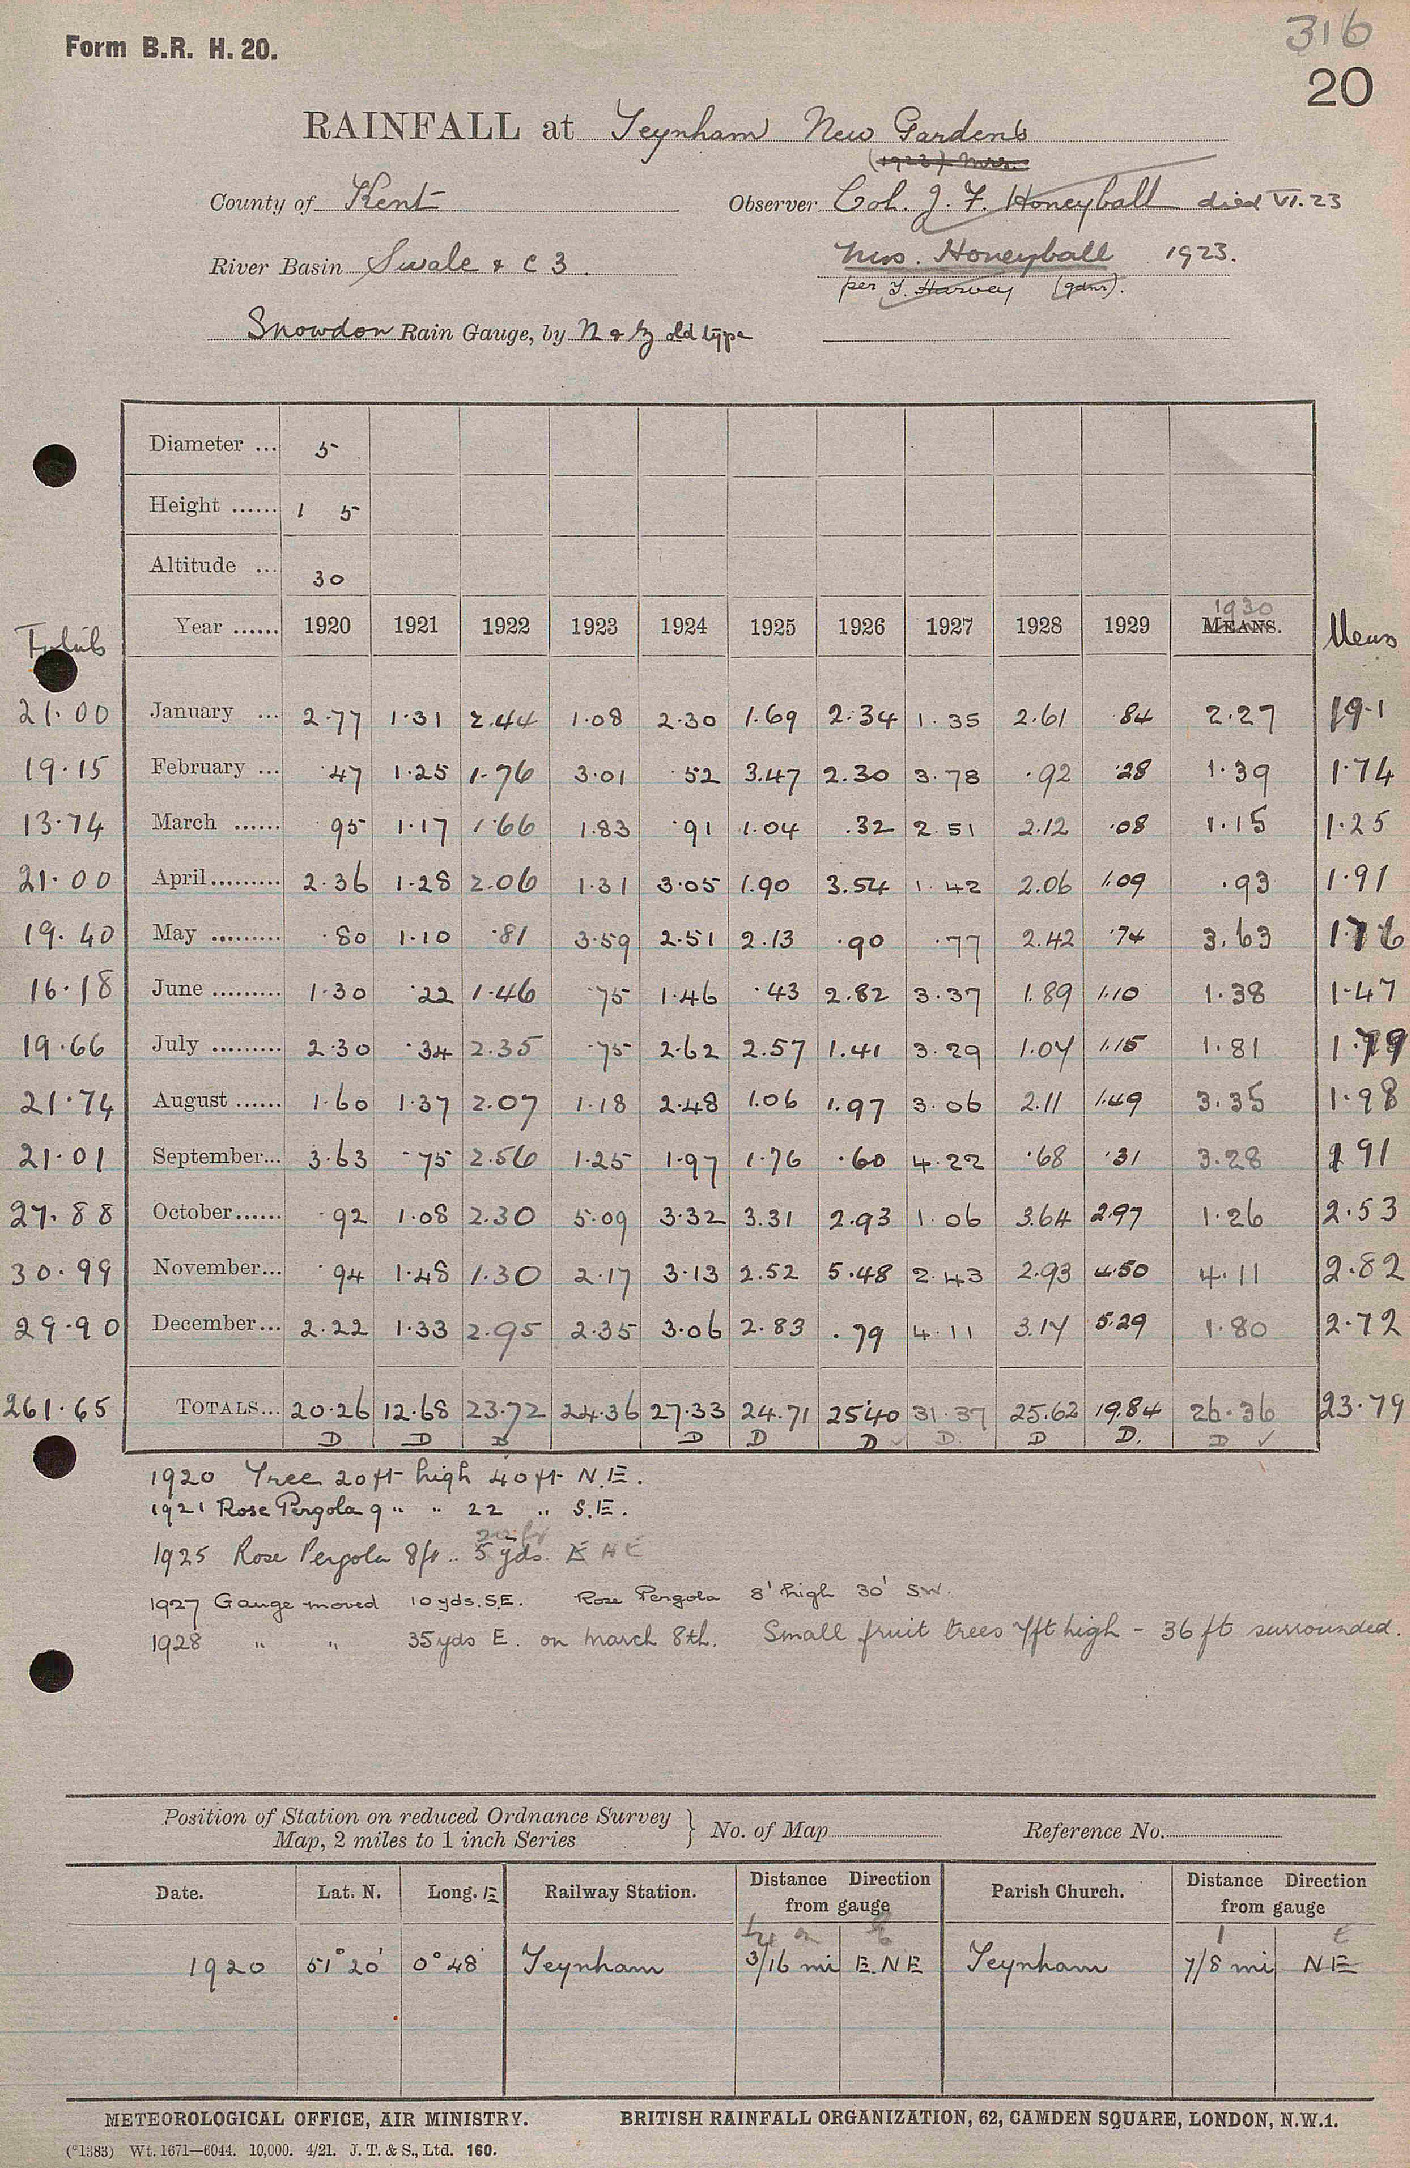 Form B.R. H. 20.
316
20
RAINFALL at Teynham New Gardens
(1923) Mrs.
County of Kent Observer Col. J. F. Honeyball died VI.23
River Basin Swale & C 3. Mrs. Honeyball 1923.
per J. Harvey (gdnr).
Snowdon Rain Gauge, by N & Z old type
Diameter ... 5
Height ...... 1 5
Altitude ... 30
1930
Totals Year ...... 1920 1921 1922 1923 1924 1925 1926 1927 1928 1929 MEANS. Means
21.00 January ... 2.77 1.31 2.44 1.08 2.30 1.69 2.34 1.35 2.61 .84 2.27 19.1
19.15 February ... .47 1.25 1.76 3.01 .52 3.47 2.30 3.78 .92 .28 1.39 1.74
13.74 March ...... .95 1.17 1.66 1.83 .91 1.04 .32 2.51 2.12 .08 1.15 1.25
21.00 April......... 2.36 1.28 2.06 1.31 3.05 1.90 3.54 1.42 2.06 1.09 .93 1.91
19.40 May ......... .80 1.10 .81 3.59 2.51 2.13 .90 .77 2.42 .74 3.63 1.76
16.18 June ......... 1.30 .22 1.46 .75 1.46 .43 2.82 3.37 1.89 1.10 1.38 1.47
19.66 July ......... 2.30 .34 2.35 .75 2.62 2.57 1.41 3.29 1.07 1.15 1.81 1.79
21.74 August ...... 1.60 1.37 2.07 1.18 2.48 1.06 1.97 3.06 2.11 1.49 3.35 1.98
21.01 September... 3.63 .75 2.56 1.25 1.97 1.76 .60 4.22 .68 .31 3.28 1 91
27.88 October...... .92 1.08 2.30 5.09 3.32 3.31 2.93 1.06 3.64 2.97 1.26 2.53
30.99 November... .94 1.48 1.30 2.17 3.13 2.52 5.48 2.43 2.93 4.50 4.11 2.82
29.90 December... 2.22 1.33 2.95 2.35 3.06 2.83 .79 4.11 3.17 5.29 1.80 2.72
261.65 TOTALS... 20.26 12.68 23.72 24.36 27.33 24.71 25.40 31.37 25.62 19.84 26.36 23.79
D D D D D D ✓ D. D D. D ✓
1920 Tree 20 ft high 40 ft N.E.
1921 Rose Pergola 9 " " 22 " S.E.
1925 Rose Pergola 8 ft .. 5 yds. E N E
1927 Gauge moved 10 yds. S.E. Rose Pergola 8' high 30' SW.
1928 " " 35 yds E. on March 8th. Small fruit trees 7ft high - 36 ft surrounded.
Position of Station on reduced Ordnance Survey
Map, 2 miles to 1 inch Series } No. of Map Reference No.
Date. Lat. N. Long. E Railway Station. Distance Direction from gauge Parish Church. Distance Direction from gauge
1 E
1920 51° 20' 0° 48' Teynham 3/16 mi E.NE Teynham 7/8 mi NE
METEOROLOGICAL OFFICE, AIR MINISTRY. BRITISH RAINFALL ORGANIZATION, 62, CAMDEN SQUARE, LONDON, N.W.1.
(*1383) Wt. 1671—6044. 10,000. 4/21. J. T. & S., Ltd. 160.